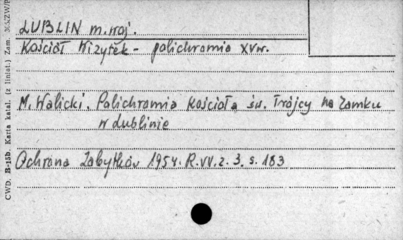 LUBLIN m. woj.
Kościół Wizytek - polichromia XV w.
M. Walicki. Polichromia Kościoła św. Trójcy na Zamku
w Lublinie
Ochrona Zabytków 1954. R. VII. z. 3. s. 183
CWD. B-15b. Karta katal. (z liniat.) Zam.